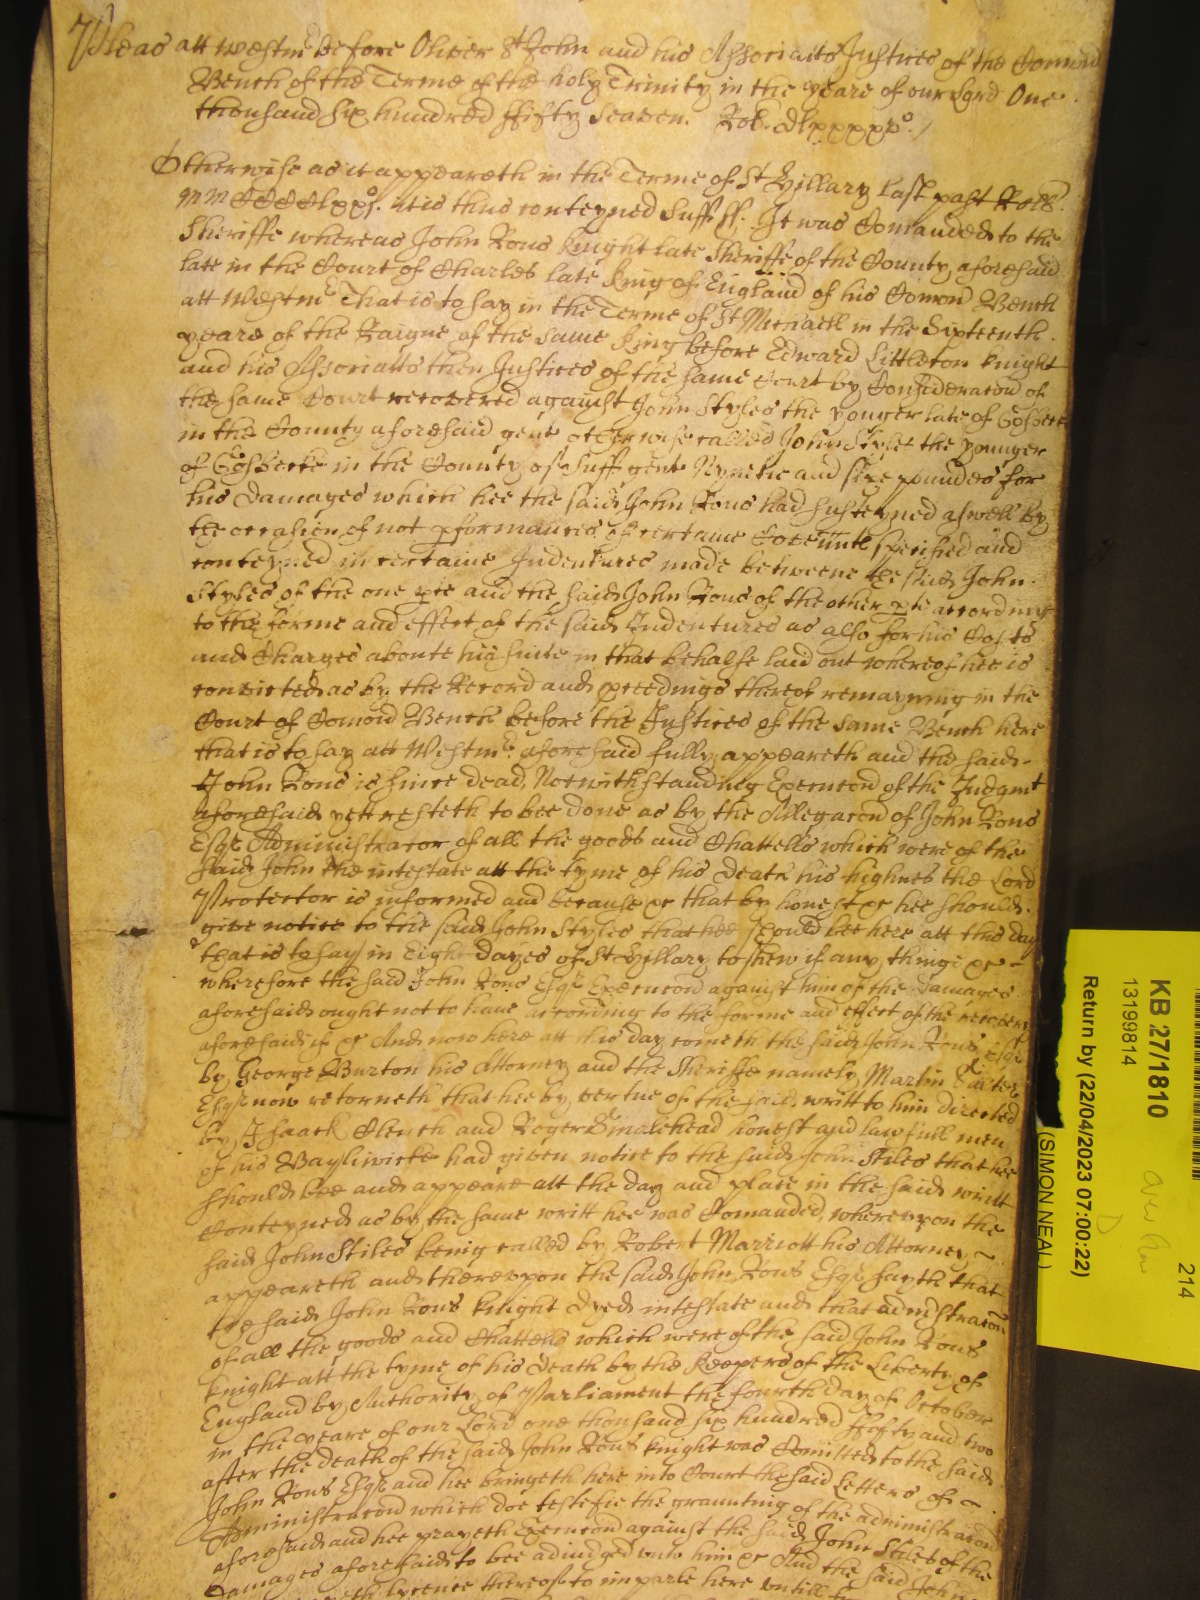 Pleas att Westmr before Oliver St John and his Associats Justices of the Comon
Bench of the Terme of the holy Trinity in the yeare of our Lord One
thousand six hundred ffifty seaven. Rot.
Otherwise as it appeareth in the Terme of St Hillary last past Roll
it is thus conteyned Suff ss. It was Comanded to the
Sheriffe whereas John Rous knight late Sheriffe of the County aforesaid
late in the Court of Charles late King of England of his Comon Bench
att Westmr That is to say in the Terme of St Michaell in the Sixteenth
yeare of the Raigne of the same King before Edward Littleton knight
and his Associatts then Justices of the same Court by Consideracon of
the same Court recovered against John Styles the yonger late of Gosbeck
in the County aforesaid gent otherwise called John Styles the younger
of Gosbecke in the County of Suff gent Nynetie and sixe pounds for
his damages which hee the said John Rous had susteyned aswell by
the occasion of not pformance of certaine Covennts specified and
conteyned in certaine Indentures made betweene the said John
Styles of the one pte and the said John Rous of the other pte according
to the forme and effect of the said Indentures as also for his Costs
and Charges aboute his suite in that behalfe laid out whereof hee is
convicted as by the Record and pceedings thereof remayning in the
Court of Comon Bench before the Justices of the same Bench here
that is to say att Westmr aforesaid fully appeareth and the said
John Rous is since dead, Notwithstanding Execucon of the Judgmt
aforesaid yett resteth to bee done as by the Allegacon of John Rous
Esqr Administrator of all the goods and Chattells which were of the
said John the intestate att the tyme of his death his highnes the Lord
Protector is informed and because &c that by honest &c hee should
give notice to the said John Styles that hee should bee here att this day
that is to say in Eight dayes of St Hillary to shew if any thinge &c
wherefore the said John Rous Esqr Execucon against him of the damages
aforesaid ought not to have according to the forme and effect of the recovery
aforesaid if &c And now here att this day cometh the said John Rous Esqr
by George Burton his Attorney and the Sheriffe namely Martin
Esqr now retorneth that hee by vertue of the said writt to him directed
by Isaack Clench and Roger Smalehead honest and lawfull men
of his Bayliwicke had given notice to the said John Stiles that hee
should bee and appeare att the day and place in the said writt
Conteyned as by the same writt hee was Comanded, whereupon the
said John Stiles being called by Robert Marriott his Attorney
appeareth and thereupon the said John Rous Esqr sayth that
the said John Rous knight dyed intestate and that adminstracon
of all the goods and Chattells which were of the said John Rous
knight att the tyme of his death by the Keepers of the Liberty of
England by Authority of Parliament the fourth day of October
in the yeare of our Lord one thousand six hundred ffifty and two
after the death of the said John Rous knight was Comitted to the said
John Rous Esqr and hee bringeth here into Court the said Letters of
Administracon which doe testifie the graunting of the administracon
aforesaid and hee prayeth Execucon against the said John Stiles of the
damages aforesaid to bee adiudged unto him &c And the said John
lycence thereof to imparle here untill
KB 27/1810
13199814
Return by (22/04/2023 07:00:22)
(SIMON NEAL)
214